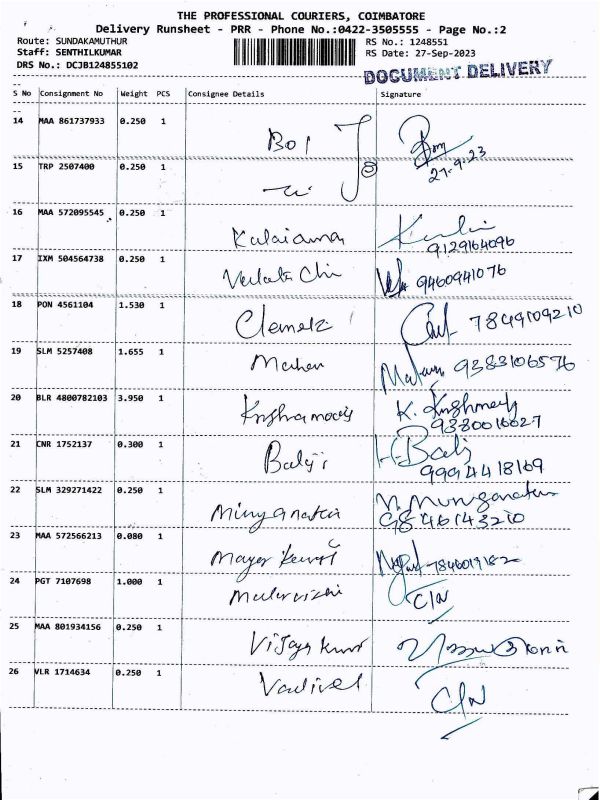 THE PROFESSIONAL COURIERS, COIMBATORE
Delivery Runsheet - PRR - Phone No.:0422-3505555 - Page No.:2
Route: SUNDAKAMUTHUR RS No.: 1248551
Staff: SENTHILKUMAR RS Date: 27-Sep-2023
DRS No.: DCJB124855102
DOCUMENT DELIVERY
S No Consignment No Weight PCS Consignee Details Signature
14 MAA 861737933 0.250 1 BOI
27-9-23
15 TRP 2507400 0.250 1
16 MAA 572095545 0.250 1 Kalaiamma
9129164096
17 IXM 504564738 0.250 1 9460941076
18 PON 4561104 1.530 1 7849109210
19 SLM 5257408 1.655 1 9383106576
20 BLR 4800782103 3.950 1 Krishnamoorthy K.
9380016627
21 CNR 1752137 0.300 1 Balaji
9994418169
22 SLM 329271422 0.250 1
9846143210
23 MAA 572566213 0.080 1
24 PGT 7107698 1.000 1 C/N
25 MAA 801934156 0.250 1 Vijayakumar
26 VLR 1714634 0.250 1 Vadivel C/N